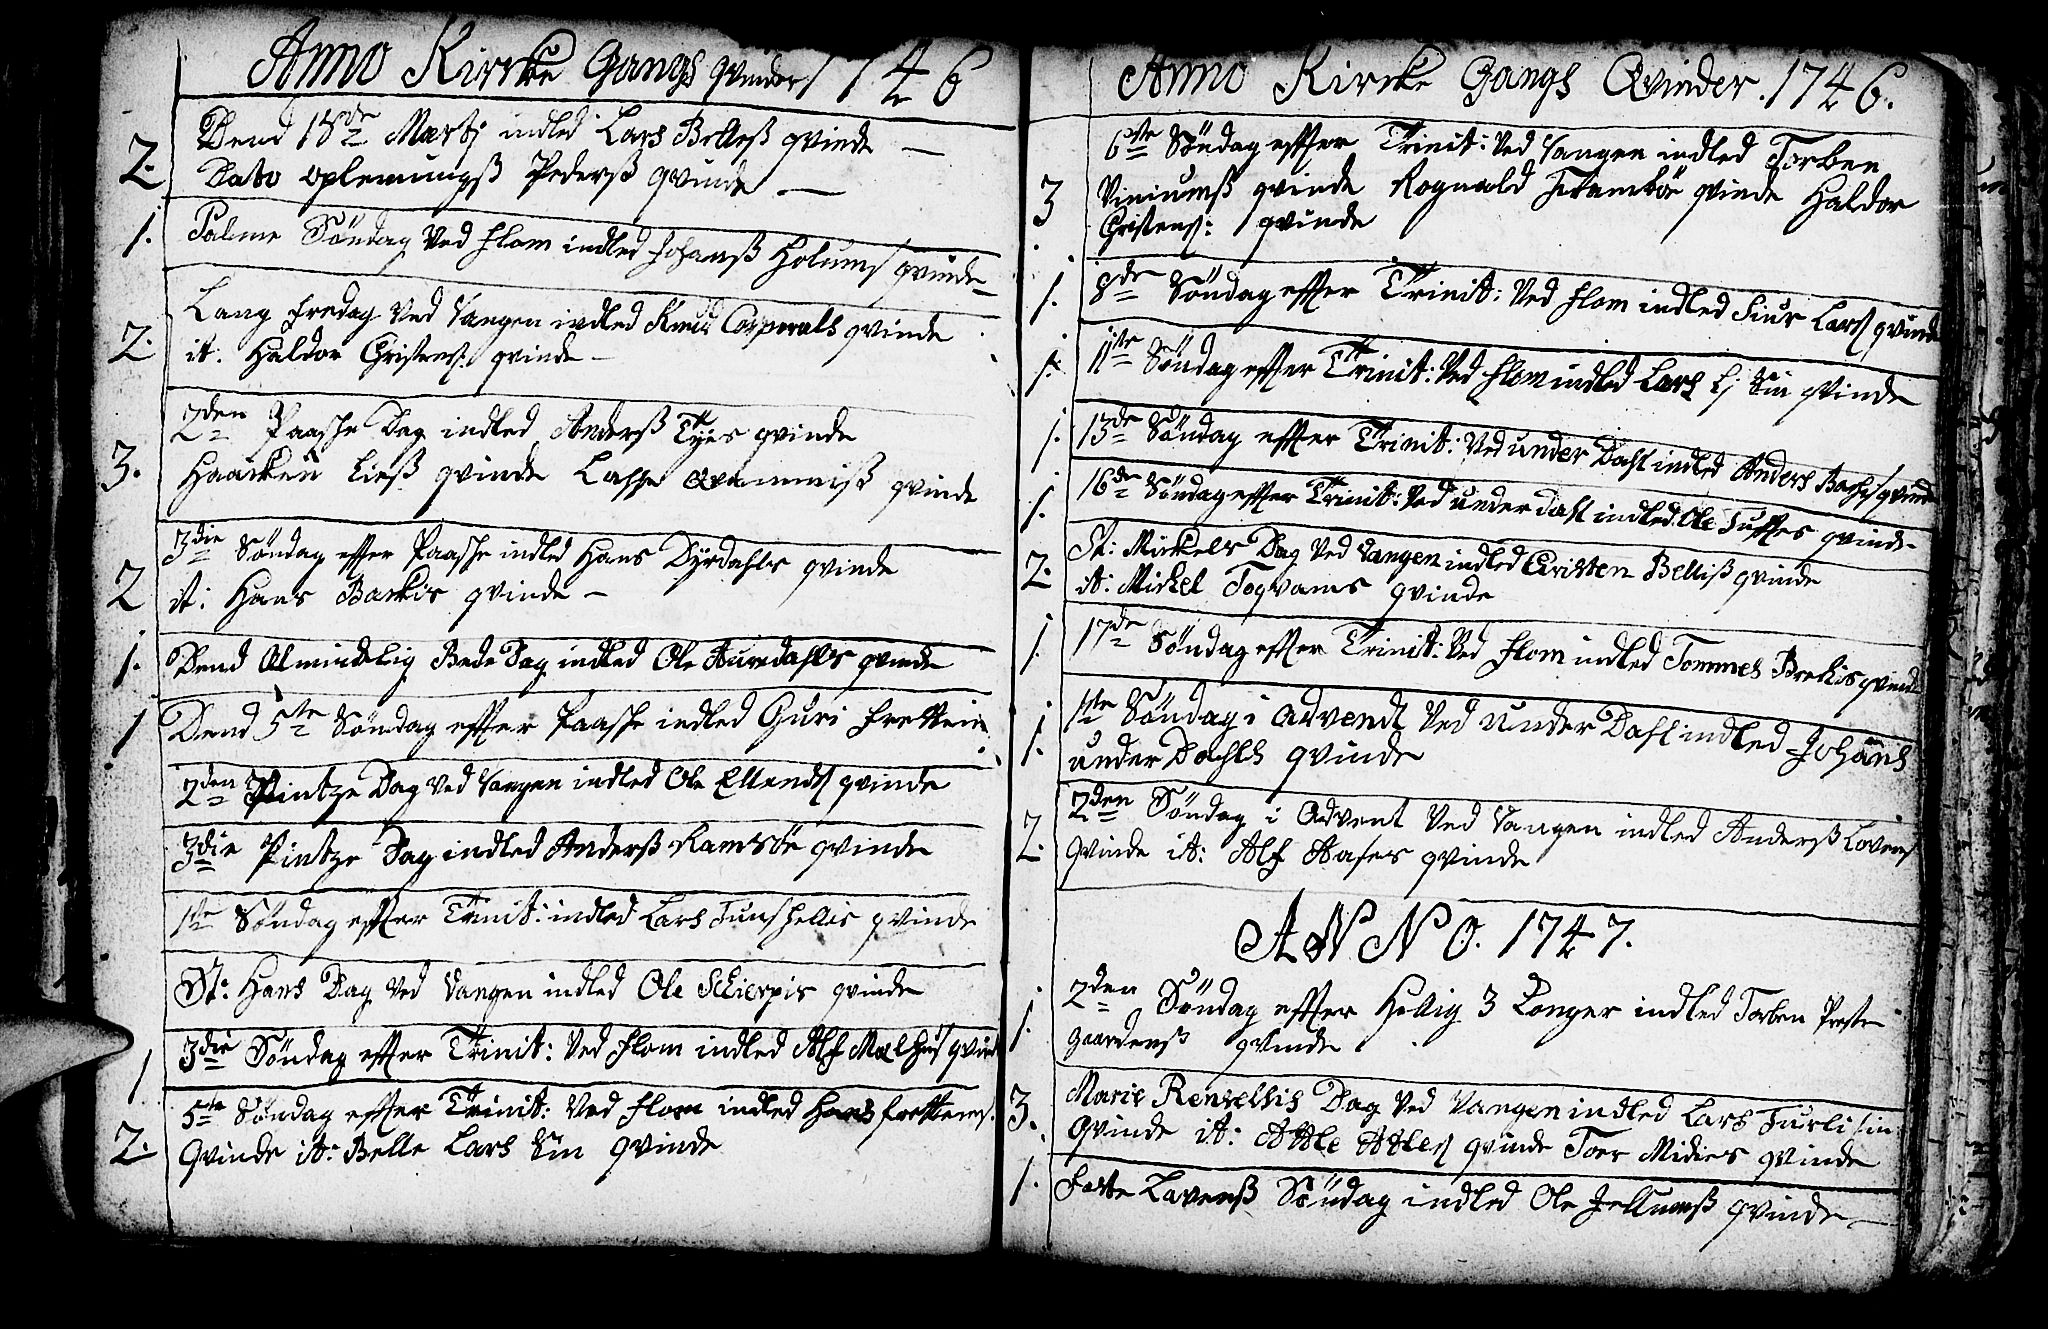 Anno Kircke Gangs qvinder 1746
Dend 18de Martj indled Lars Belleß qvinde —
2. Dato oplemungß Pederß qvinde —
1. Palme Söndag Ved Flom indled Johanß Holums qvinde —
Lang Fredag Ved Vangen indled Knud Corporals qvinde
2. it. Haldor Christens: qvinde —
2den Paaske Dag indled Anderß Tyes qvinde
3. Haacken Ließ qvinde Lasse qvinde
3die Söndag effter Paaske indled Hans Dyrdahls qvinde
2 it: Hans Barkis qvinde —
1. Dend Almindelig Bede Dag indled Ole Auredahls qvinde
1 Dend 5te Söndag effter Paaske indled Guri Frettein
2den Pintze Dag Ved Vangen indled Ole Ellends qvinde
3die Pintze Dag indled Anderß Ramsöe qvinde
1te Söndag effter Trinit: indled Lars Tunshellis qvinde
St: Hans Dag Ved Vangen indled Ole Schierpis qvinde
1 3die Söndag effter Trinit: Ved Flom indled Alf Mælhus qvind
5te Söndag effter Trinit: Ved Flom indled Hans Frettems.
2. Qvinde it: Belle Lars Sin qvinde
Anno Kircke Gangs Qvinder. 1746.
6te Söndag effter Trinit: Ved Vangen indled Torben
3 Viniumß qvinde Rognald Framböe qvinde Haldor
Christens: qvinde
1. 8de Söndag effter Trinit: Ved Flom indled Siur Lars qvinde
1. 11te Söndag effter Trinit: Ved Flom indled Lars Lj Sin qvinde
1. 13de Söndag effter Trinit: Ved under Dahl indled Anders Backs qvinde
1. 16de Söndag effter Trinit: Ved under dahl indled Ole Tuftes qvinde
St: Mickels Dag Ved Vangen indled Christen Belliß qvinde
2. it: Mickel Togvams qvinde
1. 17de Söndag effter Trinit: Ved Flom indled Tommes Brekis qvinde
1te Söndag i Advendt Ved under Dahl indled Johans
1. under Dahls qvinde
2den Söndag i Advent Ved Vangen indled Anderß Lovens
2. Qvinde it: Alf Aases qvinde
ANNO. 1747.
2den Söndag effter Hellig 3 Konger indled Torben Preste
1. gaardenß qvinde
Marie Renselsis Dag Ved Vangen indled Lars Turli sin
3. Qvinde it: Attle Atles qvinde Toer Midies qvinde
1. Faste Lavenß Söndag indled Ole Jellumß qvinde —